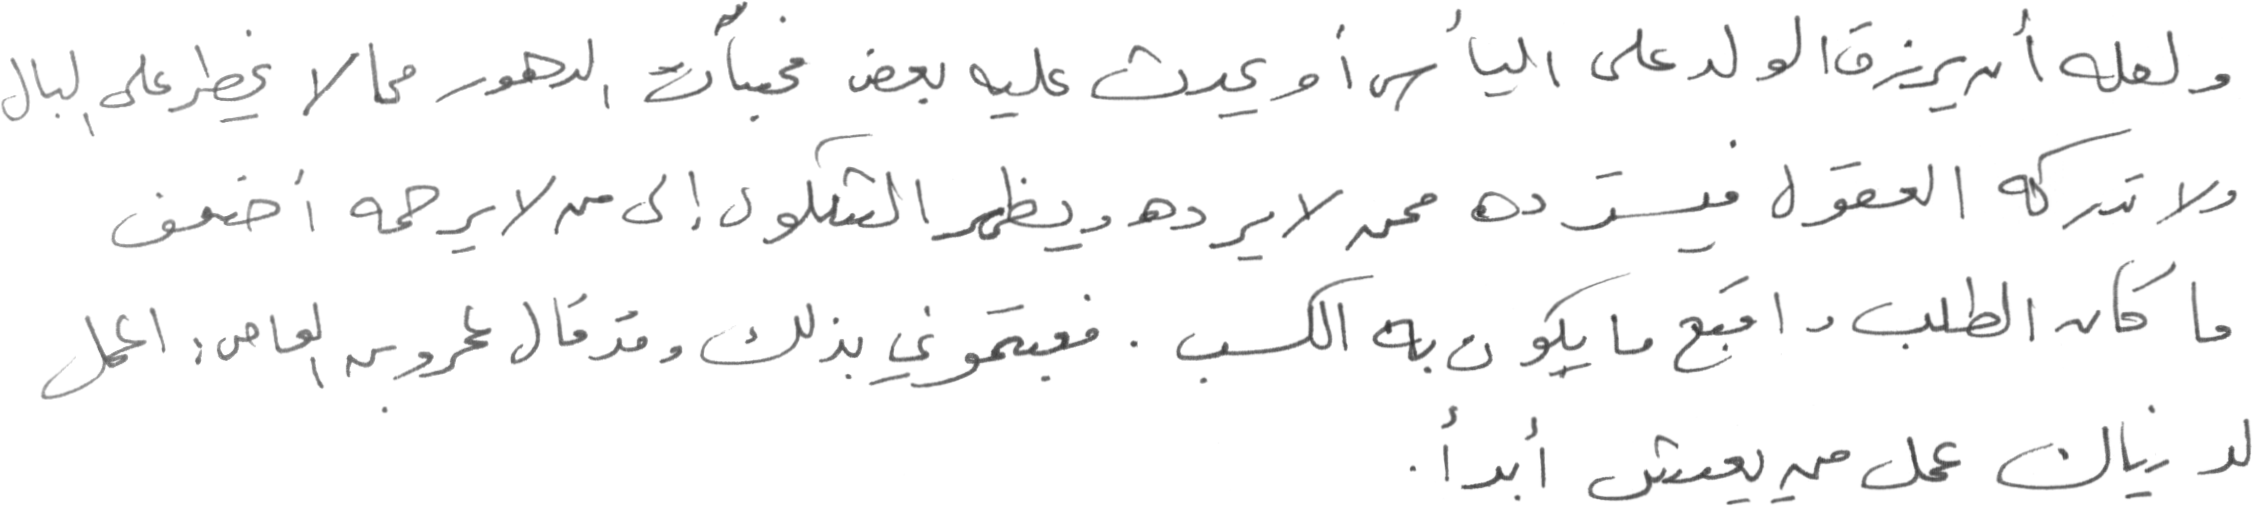 ولعله أن يرزق الولد على اليأس أو يحدث عليه بعض مخبآت الدهور مما لا يخطر على البال
ولا تدركه العقول فيسترده ممن لا يرده ويظهر الشكوى إلى من لا يرحمه أضعف
ما كان الطلب واقبح ما يكون به الكسب. فعبتموني بذلك وقد قال عمرو بن العاص: اعمل
لدنياك عمل من يعيش أبدأ.